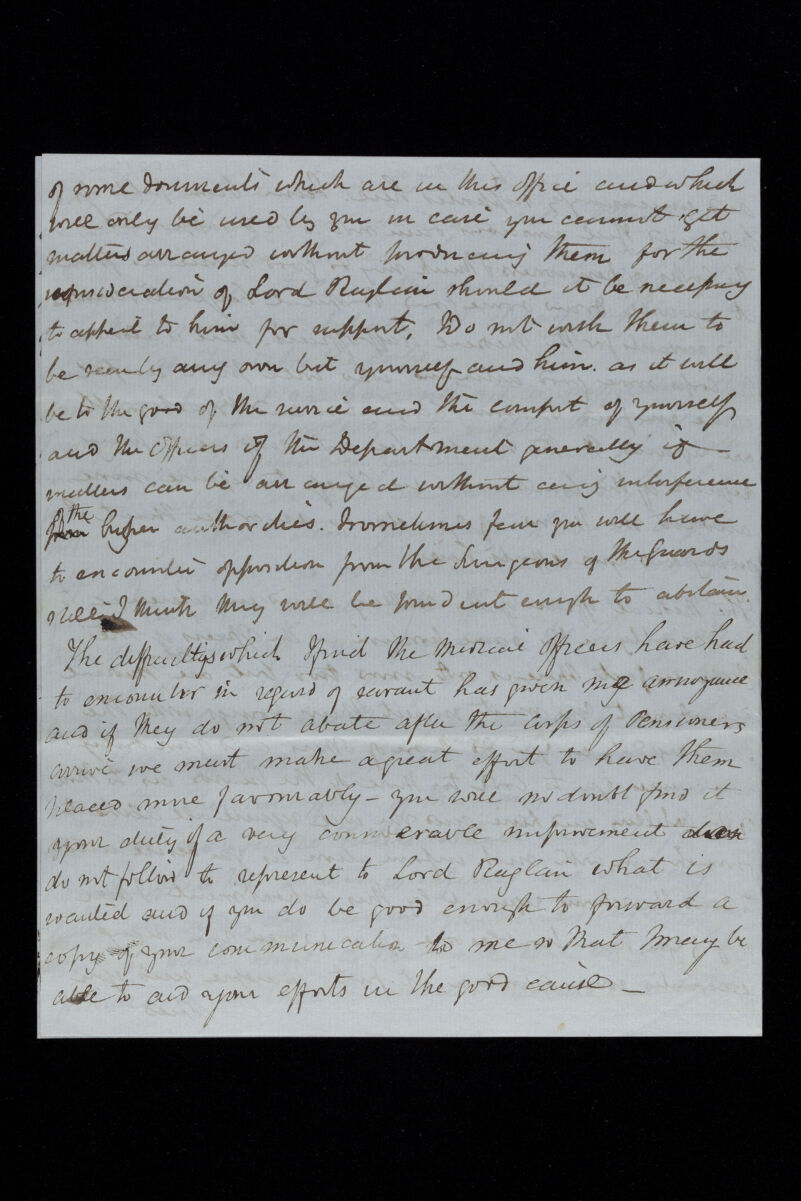 of some documents which are in this office and which
will only be used by you in case you cannot get
matters arranged without producing them for the
consideration of Lord Raglan should it be necessary
to appeal to him for support. Do not wish them to
be seen by any own but yourself and him. as it will
be to the good of the service and the comfort of yourself
and the officers of the Department generally if
matters can be arranged without any interference
of the higher authorities. I sometimes fear you will have
to encounter opposition from the Surgeons of the Guards
still I think they will be prudent enough to abstain.
The difficultys which I find the Medical officers have had
to encounter in regard of servant has given me annoyance
and if they do not abate after the Corps of Pensioners
arrive we must make a great effort to have them
placed more favourably – you will no doubt find it
your duty if a very considerable improvement
do not follow to represent to Lord Raglan what is
wanted and if you do be good enough to forward a
copy of your communication to me so that I may be
able to aid your efforts in the good cause –